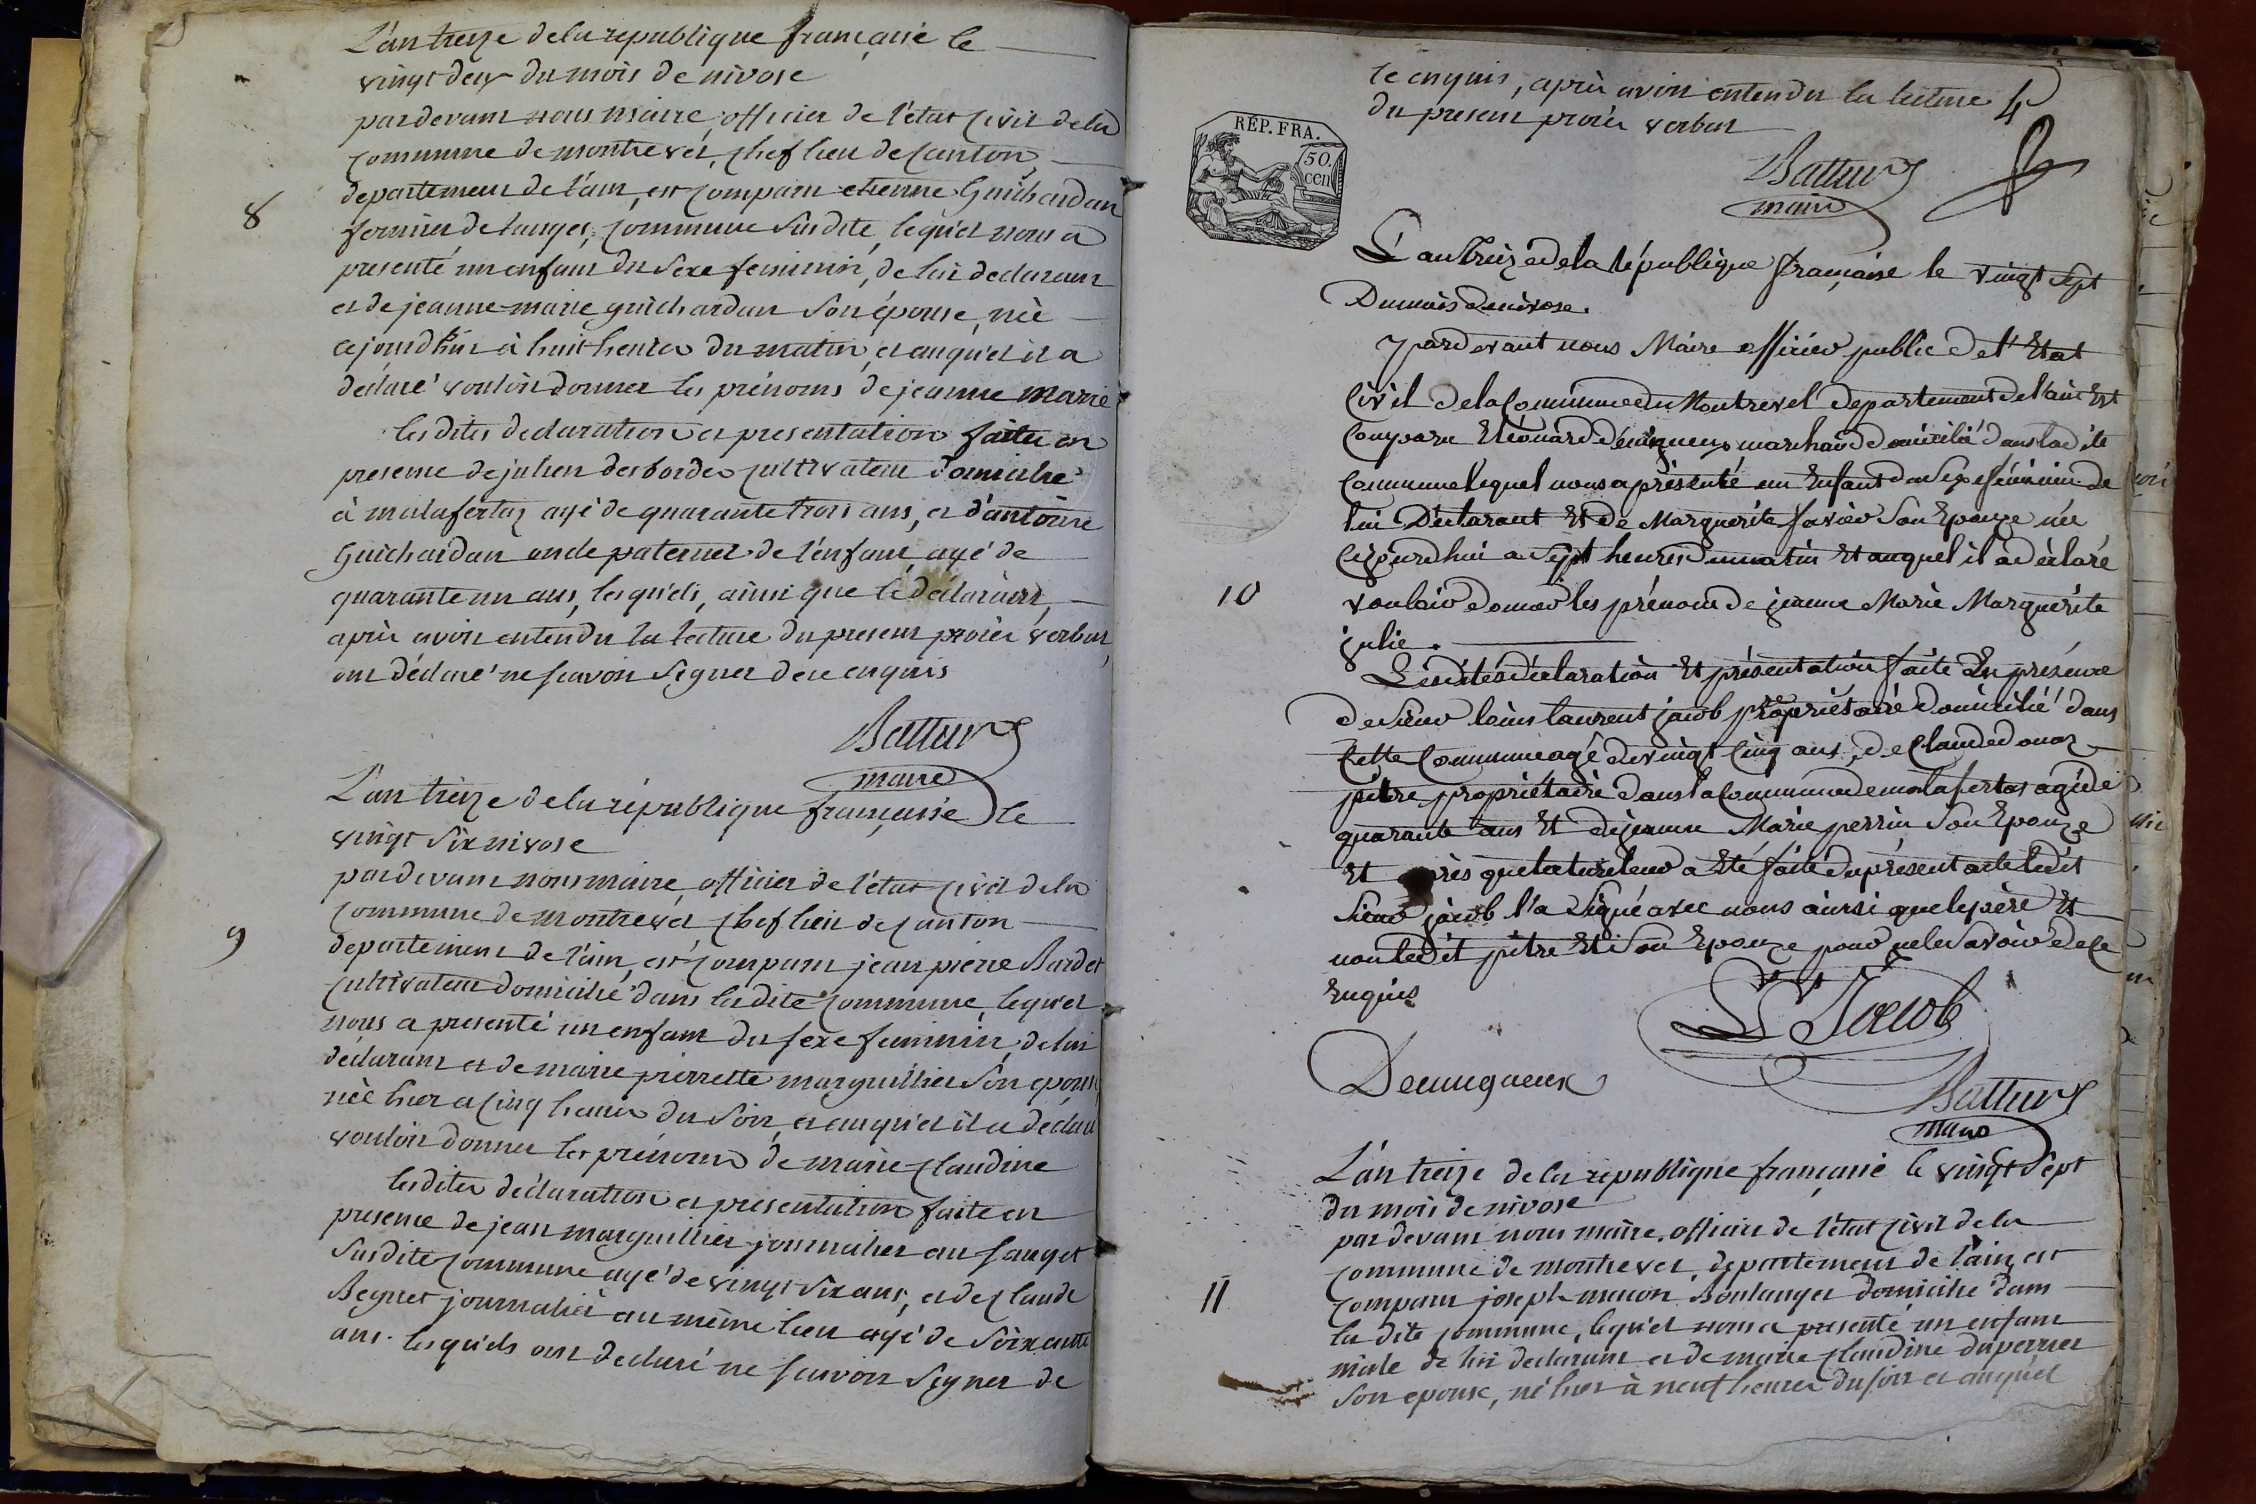 L'an treize de la republique française le
vingt deux du mois de nivose
par devant nous maire, officier de l'état civil de la
commune de montrevel, chef lieu de canton
departement de l'ain, est comparu etienne Guichardan
8
fermier de lauges, commune susdite, lequel nous a
presenté un enfant du sexe feminin, de lui declarant
et de jeanne-marie guichardan son épouse, née
cejourd'hui à huit heures du matin, et auquel il a
declaré vouloir donner les prénoms de jeanne marie
lesdites declaration et presentation faites en
presence de julien desbordes cultivateur domicilié
à malafertaz agé de quarante trois ans, et d'antoine
Guichardan oncle paternel de l'enfant, agé de
quarante un ans, lesquels, ainsi que le déclarant,
après avoir entendu la lecture du present procès verbal,
ont déclaré ne scavoir signer de ce enquis
Battur
maire
L'an treize de la république française le
vingt six nivose
par devant nous maire, officier de l'état civil de la
commune de montrevel chef lieu de canton
9
departement de l'ain, est comparu jean pierre Bardet
cultivateur domicilié dans la dite commune, lequel
nous a presenté un enfant du sexe feminin, de lui
déclarant et de marie pierrette marguillier son epouse
née hier a cinq heures du soir, et auquel il a declaré
vouloir donner les prénoms de marie claudine
lesdites déclaration et presentation faites en
presence de jean marguillier journalier au sauget
susdite commune agé de vingt six ans, et de claude
Regnet journalier au même lieu agé de soixante
ans. lesquels ont declaré ne scavoir signer de
ce enquis, après avoir entendu la lecture
4
du present procès verbal
Battur
maire
RÉP. FRA.
50.
cen
L'an treize de la république française le vingt sept
Du mois de nivose.
Pardevant nous Maire officier public de l'Etat
Civil de la Commune du Montrevel departement de l'ain Est
Comparu Eléonard marchand domicilié dans la dite
Commune lequel nous a présenté un Enfant du sexe féminin de
lui Déclarant Et de Marguerite favier Son Epouze née
Cejourdhui a sept heures du matin Et auquel il a déclaré
10
vouloir donner les prénoms de jeanne Marie Marguerite
julie.
Lesdites déclaration Et présentation faite En présence
de sieur louis laurent jacob propriétaire domicilié dans
cette Commune agé de vingt Cinq ans, de Claude donaz
pitre propriétaire dans la Commune de malafertas agé de
quarante ans Et de jeanne Marie perrin Son Epouze
Et après que lecture leur a Eté faite du présent acte ledit
Sieur jacob l'a Signé avec nous ainsi que le père Et
non ledit pitre Et Son Epouze pour ne le savoir de ce
Enquis
Ls Lt Jacob
Battur
maire
L'an treize de la république française le vingt sept
du mois de nivose
par devant nous maire, officier de l'état civil de la
commune de montrevel, departement de l'ain, est
11
comparu joseph macon Boulanger domicilié dans
la dite commune, lequel nous a presenté un enfant
male de lui declarant et de marie claudine duperrier
son epouse, né hier à neuf heures du soir et auquel